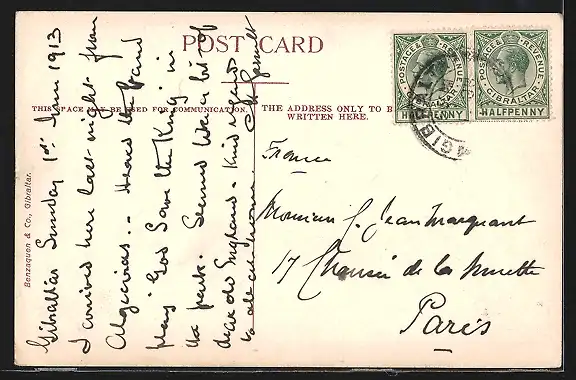 POST CARD
THIS SPACE MAY BE USED FOR COMMUNICATION.
THE ADDRESS ONLY TO B
WRITTEN HERE.
Benzaquen & Co., Gibraltar.
POSTAGE & REVENUE
GIBRALTAR
HALFPENNY
POSTAGE & REVENUE
GIBRALTAR
HALFPENNY
GIB
Gibraltar Sunday 1st June 1913
I arrived here last night from
Algeciras. - Heard the band
play God Save the King in
the park. Seemed like a bit of
dear old England. Kind regards
to all at home
France
Monsieur J. Jean Marquant
17 Chaussée de la Muette
Paris